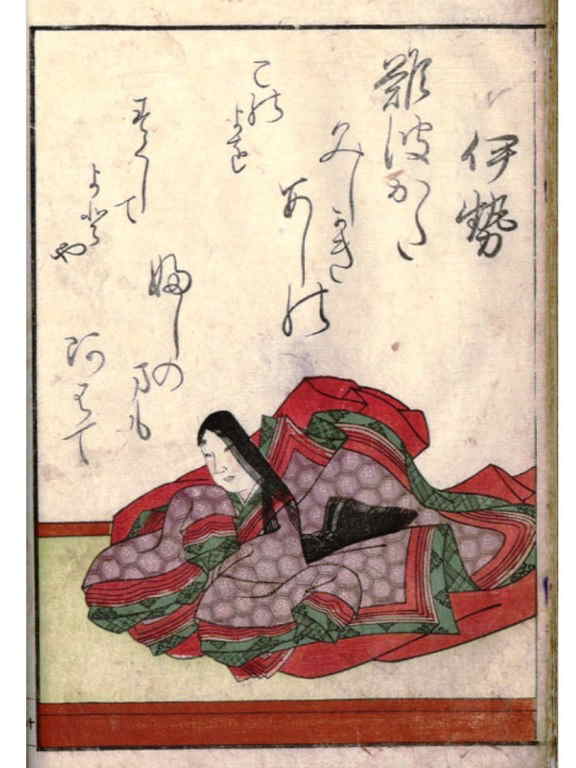 伊勢
難波かた
みしかき
あしの
婦しの
まも
阿はて
この
よを
すくして
よとや